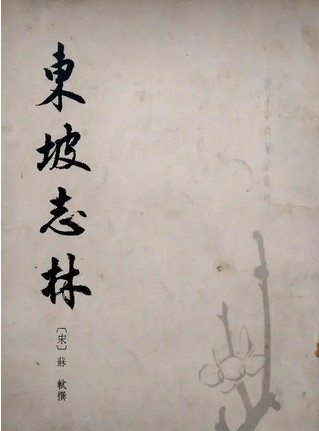 東坡志林
〔宋〕蘇軾撰